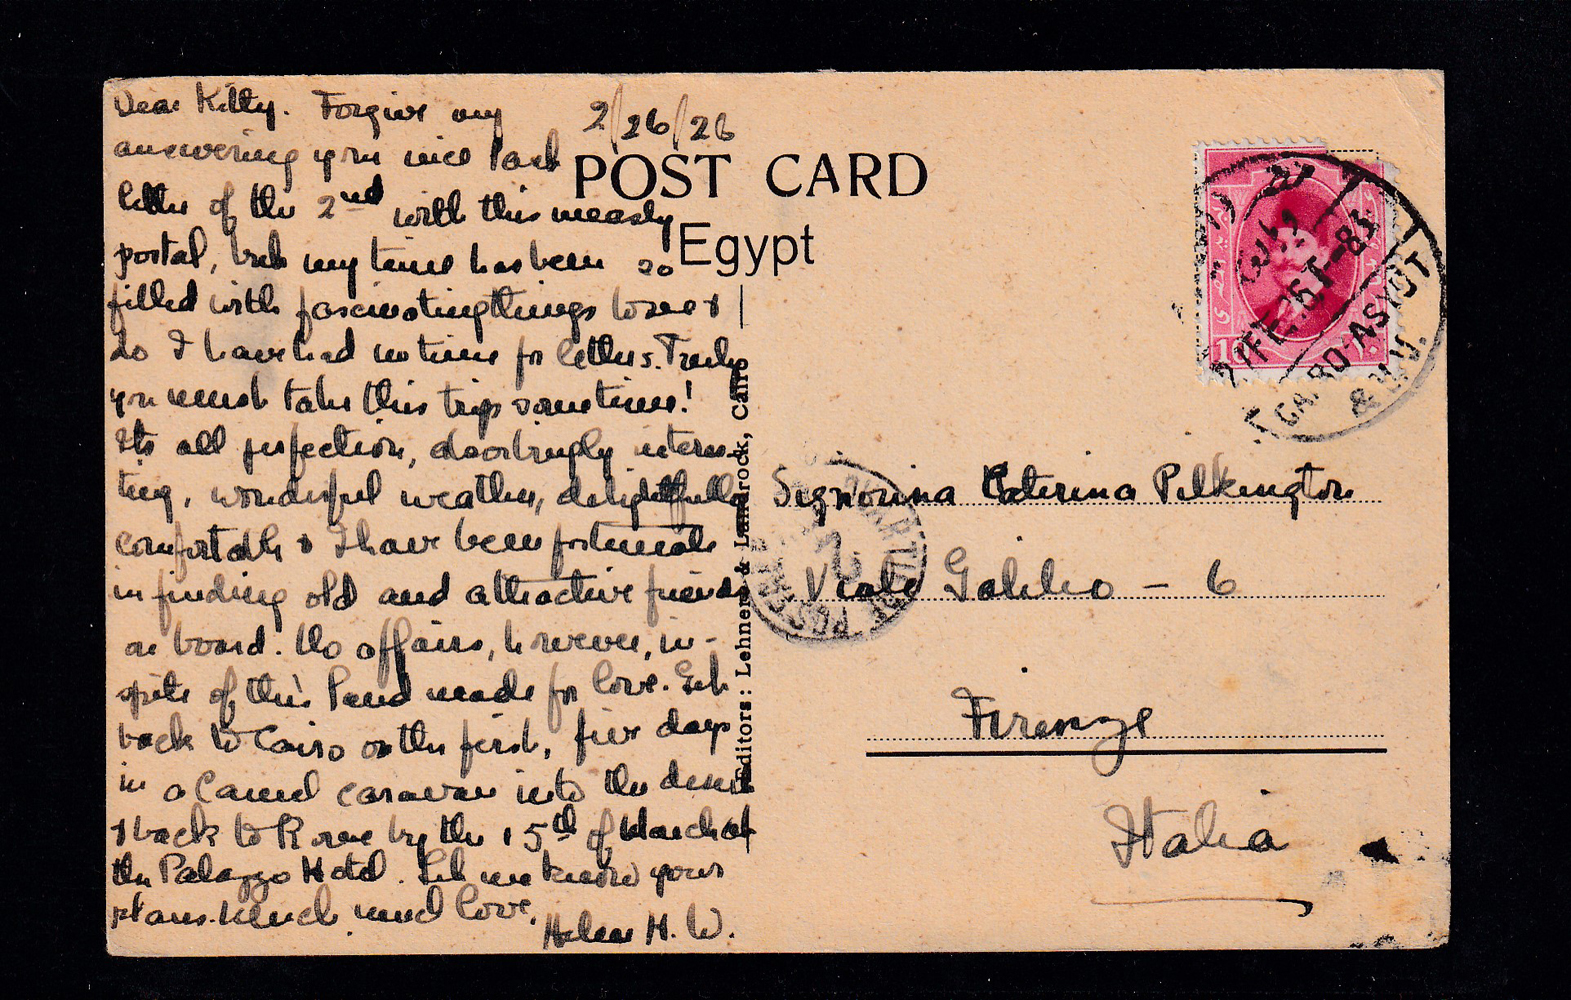 2/26/26
Dear Kitty. Forgive my
answering your nice last
letter of the 2nd with this measly
postal, but my time has been so
filled with fascinating things to see &
do I have had no time for letters. Truly
you must take this trip sometime!
Its all perfection, absorbingly interes-
ting, wonderful weather, delightfully
comfortable & I have been fortunate
in finding old and attractive friends
on board. No affairs, however, in-
spite of this land made for love. Get
back to Cairo on the first, five days
in a Camel caravan into the desert
& back to Rome by the 15th of March at
the Palazzo Hotel. Let me know your
plans. Much, much love.
Helen H. W.
POST CARD
Egypt
Editors: Lehnert & Landrock, Cairo
10
27 FE. 26 T-83
CAIRO-ASYUT
& V.V.
Signorina Caterina Pilkington
Viale Galileo - 6
Firenze
Italia